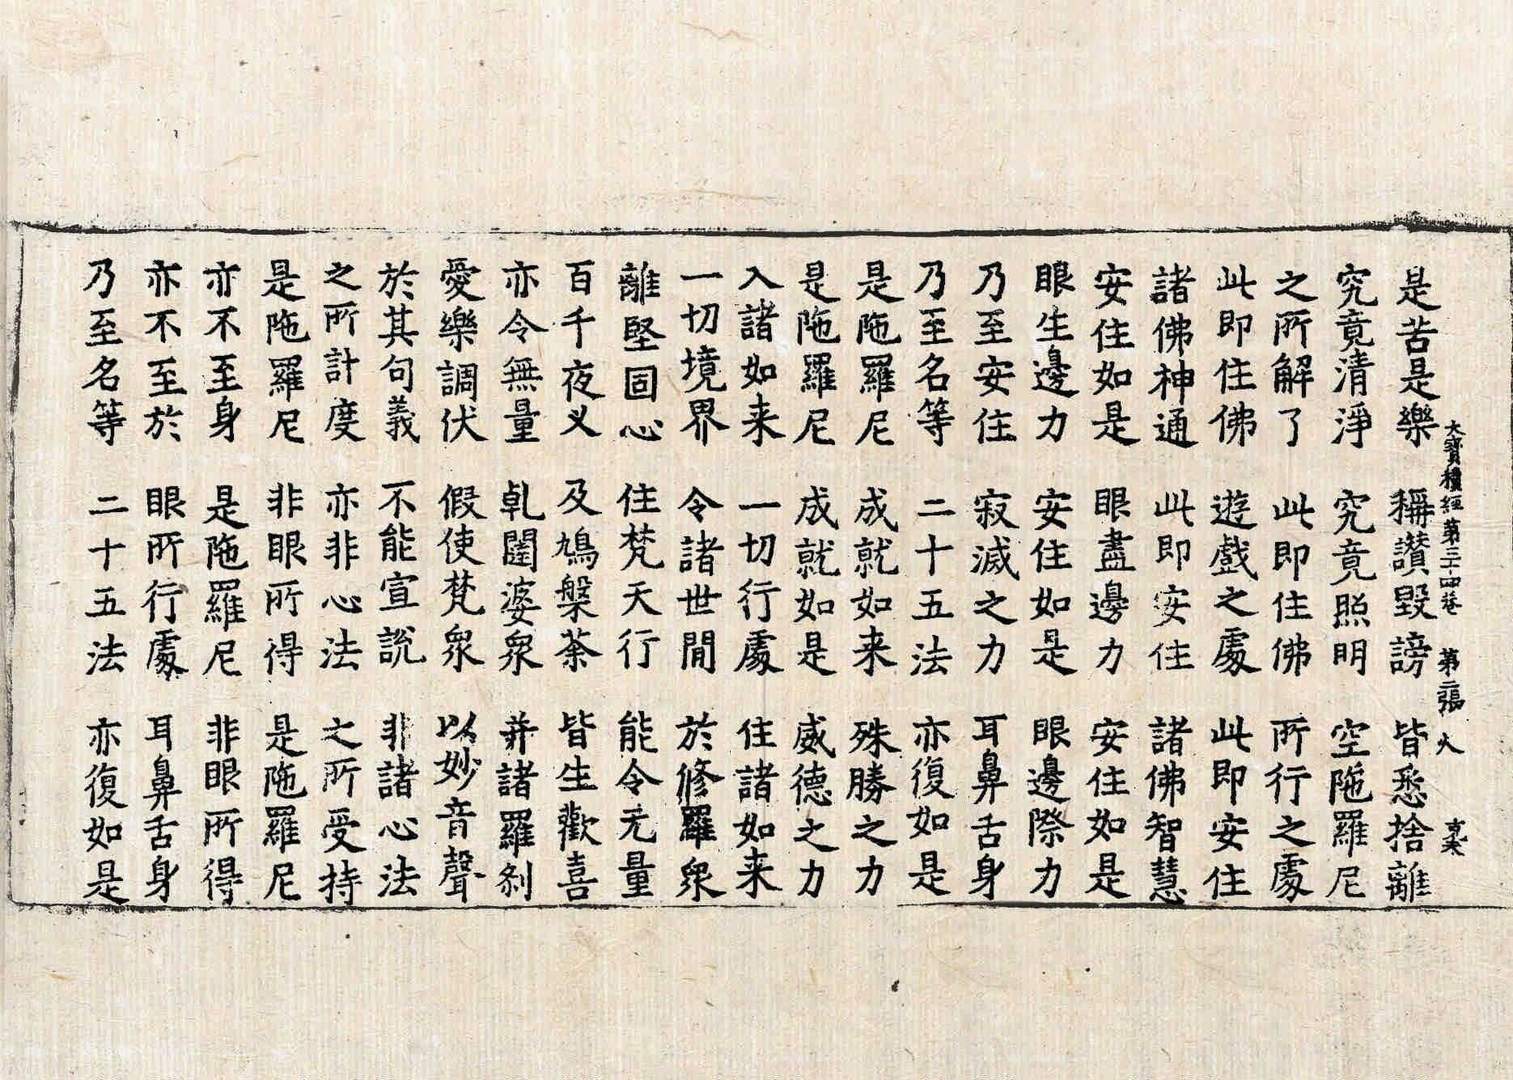 是苦是樂 稱讃毀謗 皆悉捨離
大寶積經第三十四卷 第二張 火
究竟清淨 究竟照明 空陁羅尼
之所解了 此即住佛 所行之處
此即住佛 遊戲之處 此即安住
諸佛神通 此即安住 諸佛智慧
安住如是 眼盡邊力 安住如是
眼生邊力 安住如是 眼邊際力
乃至安住 寂滅之力 耳鼻舌身
乃至名等 二十五法 亦復如是
是陁羅尼 成就如来 殊勝之力
是陁羅尼 成就如是 威德之力
入諸如来 一切行處 住諸如来
一切境界 令諸世閒 於修羅衆
離堅固心 住梵天行 能令无量
百千夜叉 及鳩槃荼 皆生歡喜
亦令無量 乹闥婆衆 并諸羅刹
愛樂調伏 假使梵衆 以妙音聲
於其句義 不能宣說 非諸心法
之所計度 亦非心法 之所受持
是陁羅尼 非眼所得 是陁羅尼
亦不至身 是陁羅尼 非眼所得
亦不至於 眼所行處 耳鼻舌身
乃至名等 二十五法 亦復如是